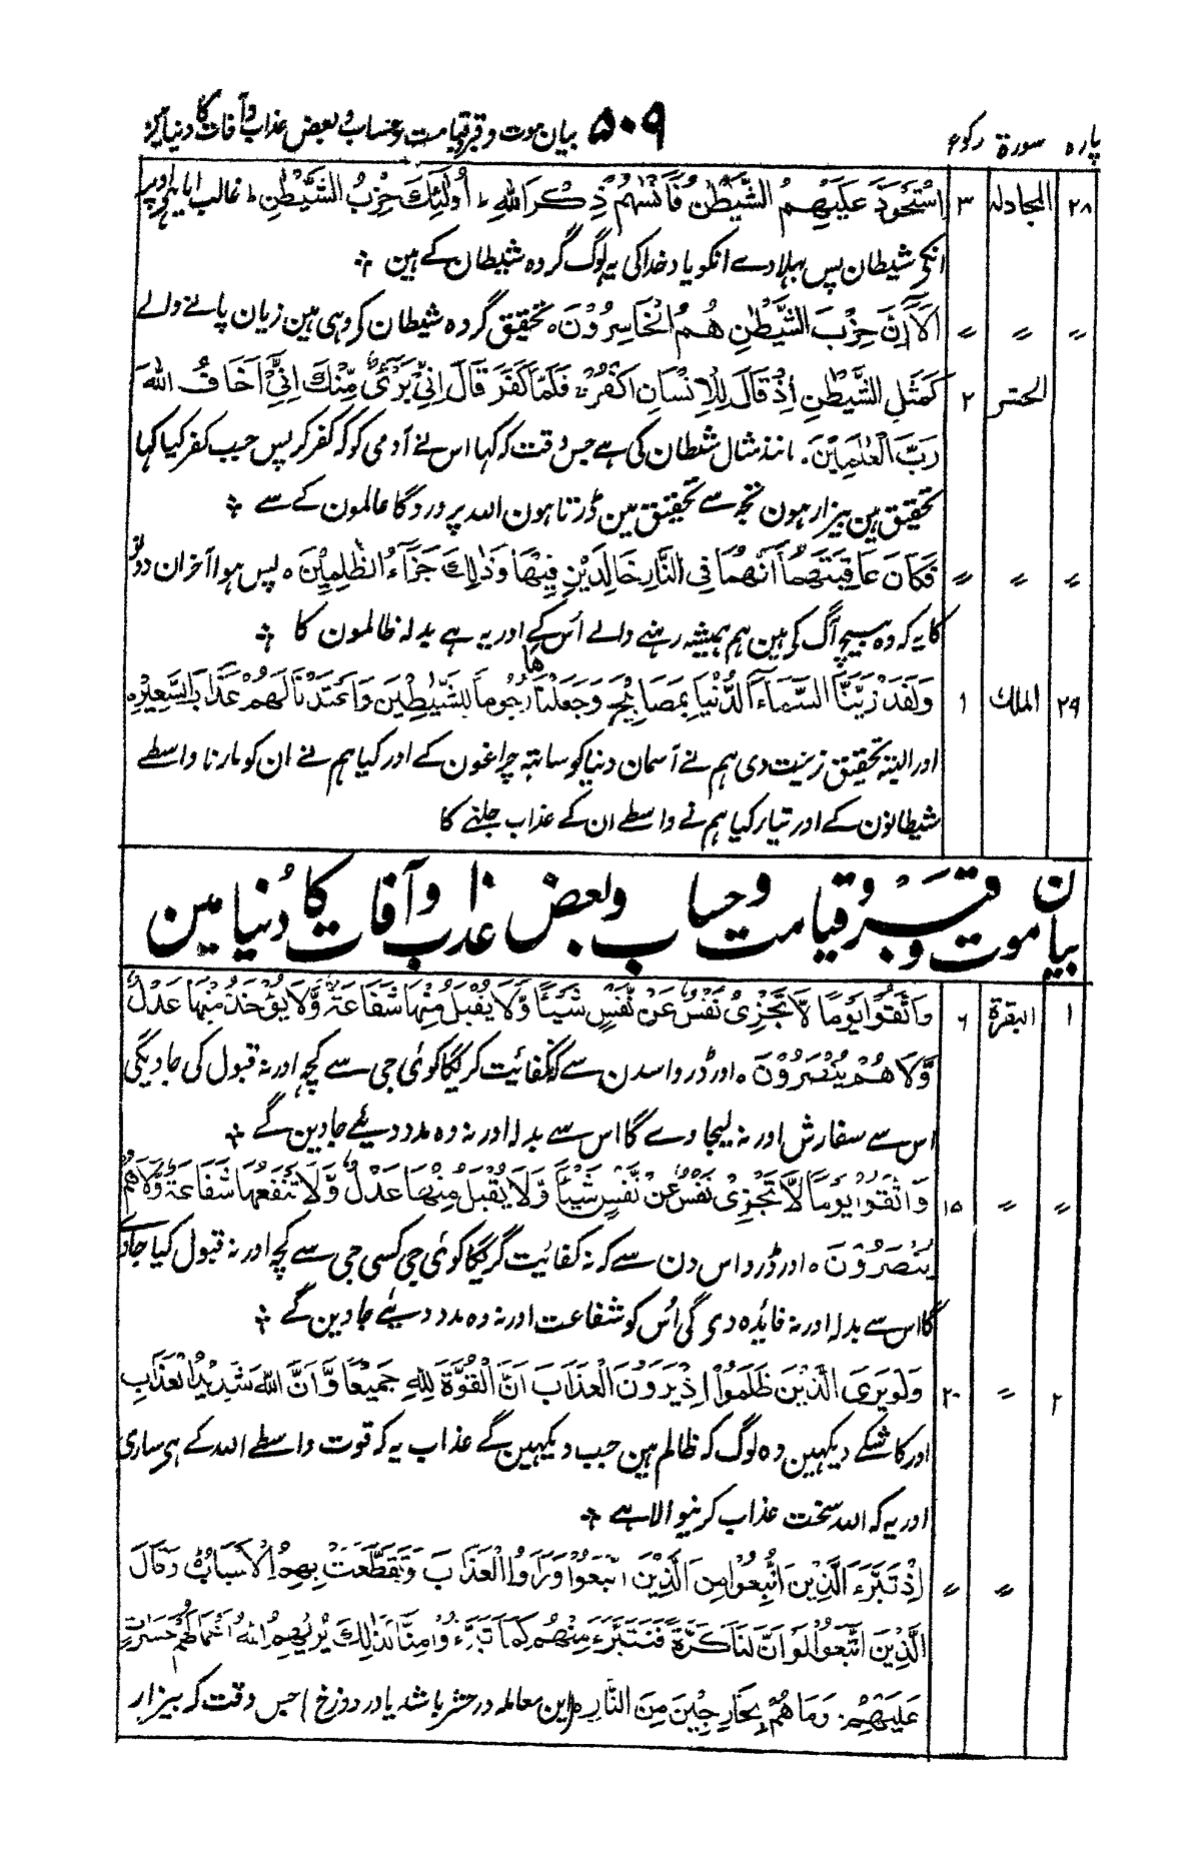 پارہ سورۃ رکوع ۵۰۹ بیان موت و قبر و قیامت و حساب و بعض عذاب و آفات کا دنیا مین
۲۸ المجادلہ ۳ اِسْتَحْوَذَ عَلَيْهِمُ الشَّيْطٰنُ فَاَنْسٰهُمْ ذِكْرَ اللهِ ؕ اُولٰٓئِكَ حِزْبُ الشَّيْطٰنِ ؕ غالب آیا ہی اوپر
انکی شیطان پس بہلا دے انکو یاد خدا کی یہ لوگ گروہ شیطان کے ہین ؞
〃 〃 〃 اَلَآ اِنَّ حِزْبَ الشَّيْطٰنِ هُمُ الْخَاسِرُوْنَ ہ تحقیق گروہ شیطان کر وہی ہین زیان پانے والے
الحشر ۲ كَمَثَلِ الشَّيْطٰنِ اِذْ قَالَ لِلْاِنْسَانِ اكْفُرْ ۚ فَلَمَّا كَفَرَ قَالَ اِنِّيْ بَرِيْٓءٌ مِّنْكَ اِنِّيْٓ اَخَافُ اللهَ
رَبَّ الْعٰلَمِيْنَ ۔ مانند مثال شطان کی ہے جس وقت کہ کہا اس نے آدمی کو کہ کفر کر پس جب کفر کیا کہا
تحقیق مین بیزار ہون تجھ سے تحقیق مین ڈرتا ہون اللہ پروردگا عالمون کے سے ؞
〃 〃 〃 فَكَانَ عَاقِبَتَهُمَآ اَنَّهُمَا فِي النَّارِ خَالِدَيْنِ فِيْهَا وَذٰلِكَ جَزَآءُ الظّٰلِمِيْنَ ہ پس ہوا آخر ان دونو
کا یہ کہ وہ بیچ آگ کی ہین ہمیشہ رہنے والے اُس کے اور یہ ہے بدلہ ظالمون کا ؞
۲۹ الملك ۱ وَلَقَدْ زَيَّنَّا السَّمَآءَ الدُّنْيَا بِمَصَابِيْحَ وَجَعَلْنٰهَا رُجُوْمًا لِّلشَّيٰطِيْنِ وَاَعْتَدْنَا لَهُمْ عَذَابَ السَّعِيْرِ ہ
اور البتہ تحقیق زینت دی ہم نے آسمان دنیا کو ساتہہ چراغون کے اور کیا ہم نے ان کو مارنا واسطے
شیطانون کے اور تیار کیا ہم نے واسطے ان کے عذاب جلنے کا
بیان موت و قبر و قیامت و حساب و بعض عذاب و آفات کا دُنیا مین
۱ البقرۃ ۶ وَاتَّقُوْا يَوْمًا لَّا تَجْزِىْ نَفْسٌ عَنْ نَّفْسٍ شَيْـًٔا وَّلَا يُقْبَلُ مِنْهَا شَفَاعَةٌ وَّلَا يُؤْخَذُ مِنْهَا عَدْلٌ
وَّلَا هُمْ يُنْصَرُوْنَ ہ اور ڈرو اسدن سے کہ نکفائیت کریگا کوئی جی سے کچہہ اور نہ قبول کی جاویگی
اس سے سفارش اور نہ لیجاوے گا اس سے بدلہ اور نہ وہ مدد دیئے جاوین گے ؞
〃 〃 ۱۵ وَاتَّقُوْا يَوْمًا لَّا تَجْزِىْ نَفْسٌ عَنْ نَّفْسٍ شَيْـًٔا وَّلَا يُقْبَلُ مِنْهَا عَدْلٌ وَّلَا تَنْفَعُهَا شَفَاعَةٌ وَّلَا هُمْ
يُنْصَرُوْنَ ہ اور ڈرو اس دن سے کہ نہ کفائیت کریگا کوئی جی کسی جی سے کچہ اور نہ قبول کیا جاوے
گا اس سے بدلہ اور نہ فائدہ دی گی اُس کو شفاعت اور نہ وہ مدد دیئے جاوین گے ؞
۲ 〃 ۲۰ وَلَوْ يَرَى الَّذِيْنَ ظَلَمُوْٓا اِذْ يَرَوْنَ الْعَذَابَ اَنَّ الْقُوَّةَ لِلّٰهِ جَمِيْعًا وَّاَنَّ اللهَ شَدِيْدُ الْعَذَابِ
اور کاشکے دیکہین وہ لوگ کہ ظالم ہین جب دیکہین گے عذاب یہ کہ قوت واسطے اللہ کے ہی ساری
اور یہ کہ اللہ سخت عذاب کرنیوالا ہے ؞
〃 〃 اِذْ تَبَرَّءَ الَّذِيْنَ اتُّبِعُوْا مِنَ الَّذِيْنَ اتَّبَعُوْا وَرَاَوُا الْعَذَابَ وَتَقَطَّعَتْ بِهِمُ الْاَسْبَابُ وَقَالَ
الَّذِيْنَ اتَّبَعُوْا لَوْ اَنَّ لَنَا كَرَّةً فَنَتَبَرَّءَ مِنْهُمْ كَمَا تَبَرَّءُوْا مِنَّا كَذٰلِكَ يُرِيْهِمُ اللهُ اَعْمَالَهُمْ حَسَرٰتٍ
عَلَيْهِمْ ۔ وَمَا هُمْ بِخَارِجِيْنَ مِنَ النَّارِ ہ (این معاملہ در حشر باشد یا در دوزخ) جس وقت کہ بیزار